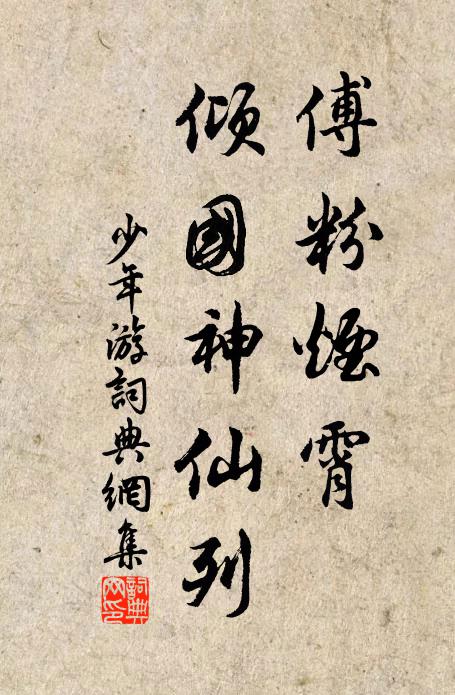 傅粉煙霄
傾國神仙列
少年游詞典網集
詞典網印